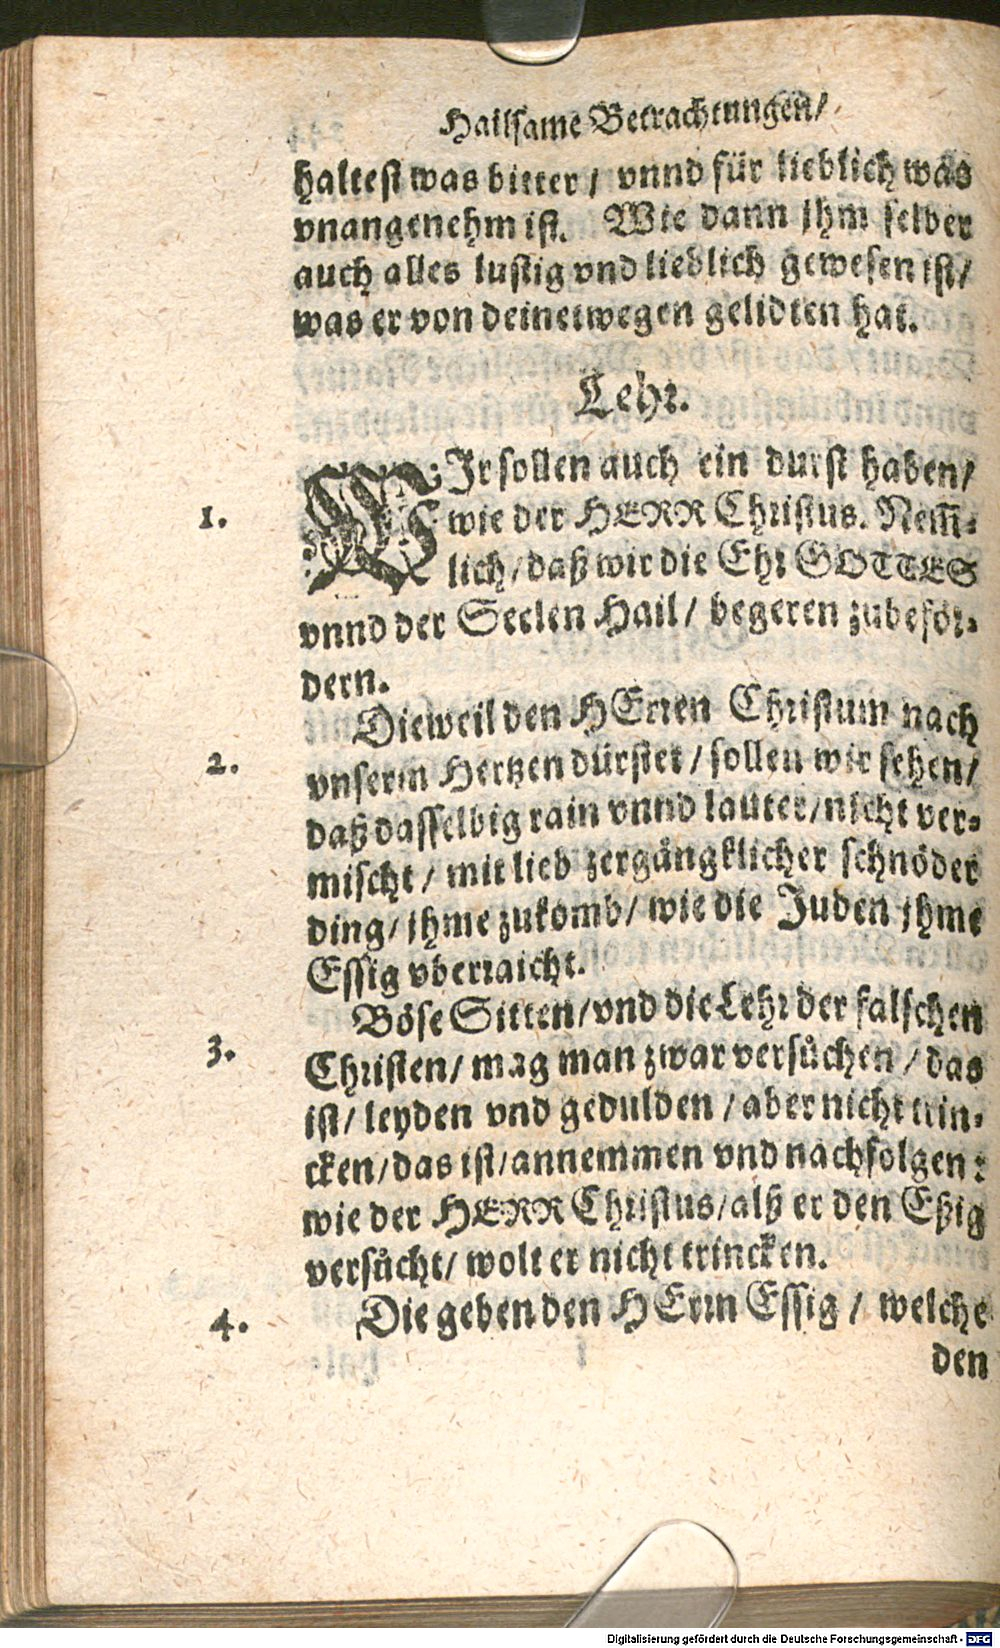 Hailsame Betrachtungen/
haltest was bitter / vnnd für lieblich was
vnangenehm ist. Wie dann jhm selber
auch alles lustig vnd lieblich gewesen ist/
was er von deinetwegen gelidten hat.
Lehr.
1. WIr sollen auch ein durst haben/
wie der HERR Christus. Nem̃-
lich / daß wir die Ehr GOTTES
vnnd der Seelen Hail / begeren zubeför-
dern.
2. Dieweil den HErren Christum nach
vnserm Hertzen dürstet / sollen wir sehen/
daß dasselbig rain vnnd lauter/nicht ver-
mischt / mit lieb zergängklicher schnöder
ding/ jhme zukomb/ wie die Juden jhme
Essig vberraicht.
3. Böse Sitten/vnd die Lehr der falschen
Christen/ mag man zwar versůchen / das
ist/ leyden vnd gedulden / aber nicht trin-
cken/das ist/annemmen vnd nachfolgen:
wie der HERR Christus/alß er den Eßig
versůcht/ wolt er nicht trincken.
4. Die geben den HErrn Essig / welche
den
Digitalisierung gefördert durch die Deutsche Forschungsgemeinschaft - DFG